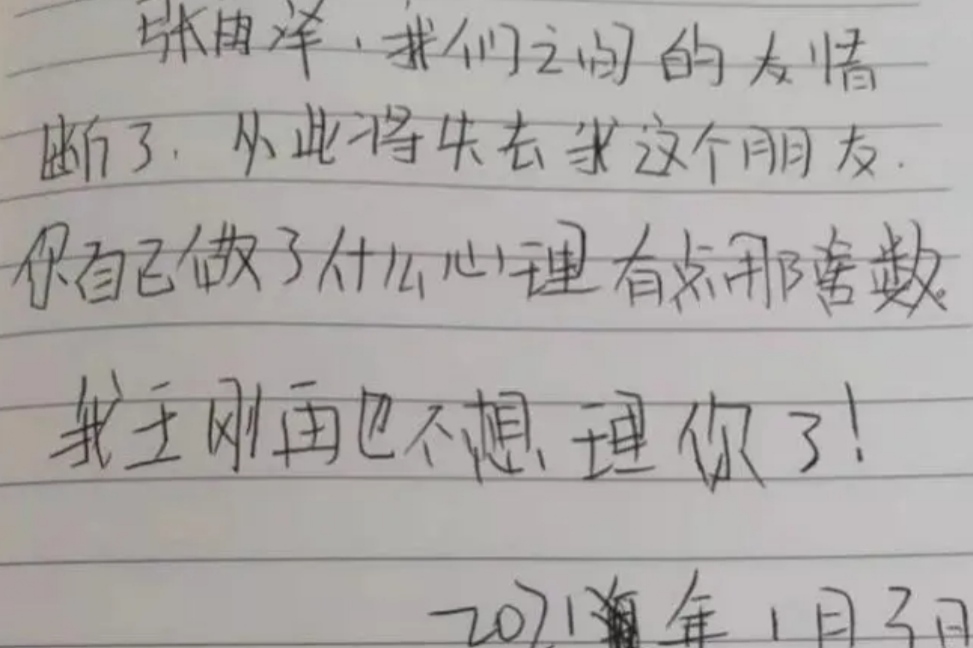 张由泽，我们之间的友情
断了．从此将失去我这个朋友．
你自己做了什么心理有点那啥数。
我王刚再也不想理你了！
2021年1月3日